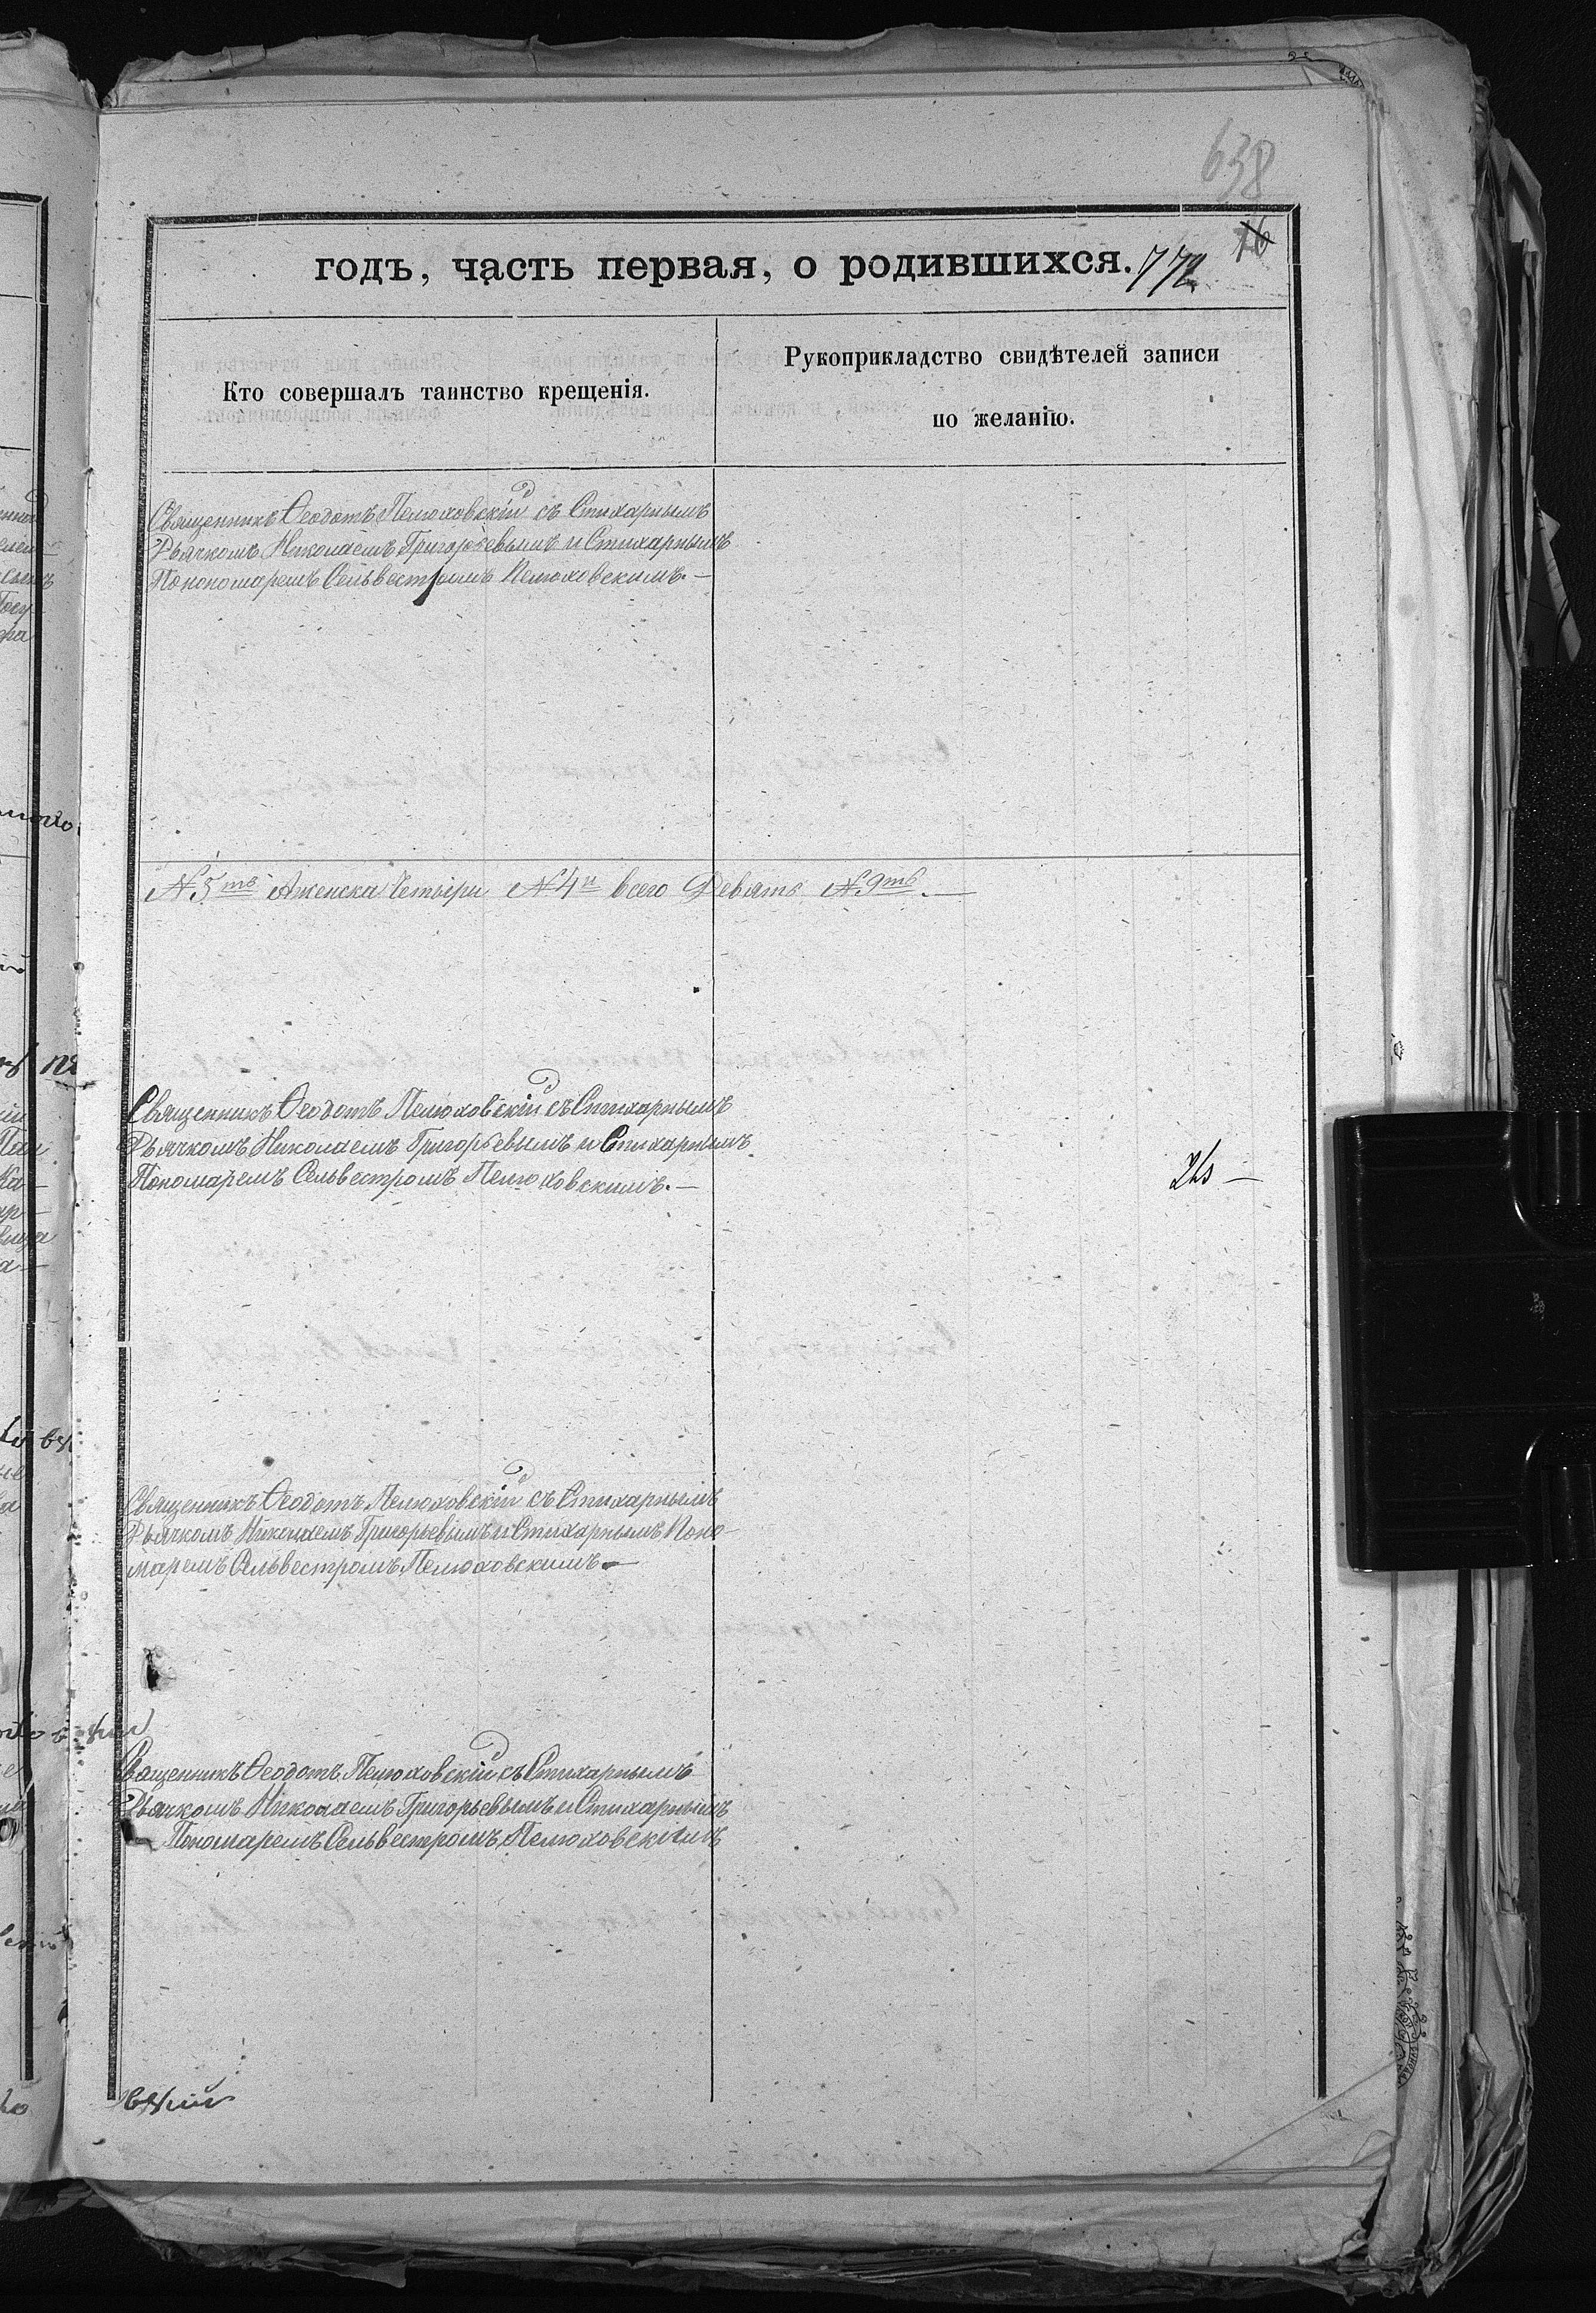 638
16
годъ, часть первая, о родившихся. 772
Кто совершалъ таинство крещенія.
Рукоприкладство свидѣтелей записи
по желанію.
Священникъ Ѳеодотъ Пелюховскій съ Стихарнымъ
Дьячкомъ Николаемъ Григорьевымъ и Стихарнымъ
Понономаремъ Сельвестромъ Пелюховскимъ.—
№ 5ть Аженска Четыри № 4и всего Девять № 9ть.—
Священникъ Ѳеодотъ Пелюховскій съ Стихарнымъ
Дьячкомъ Николаемъ Григорьевымъ и Стихарнымъ
Пономаремъ Сельвестромъ Пелюховскимъ.—
Священникъ Ѳеодотъ Пелюховскій съ Стихарнымъ
Дьячкомъ Николаемъ Григорьевымъ и Стихарнымъ Поно-
маремъ Сельвестромъ Пелюховскимъ—
Священникъ Ѳеодотъ Пелюховскій съ Стихарнымъ
Дьячкомъ Николаемъ Григорьевымъ и Стихарнымъ
Пономаремъ Сельвестромъ Пелюховскимъ
вскій